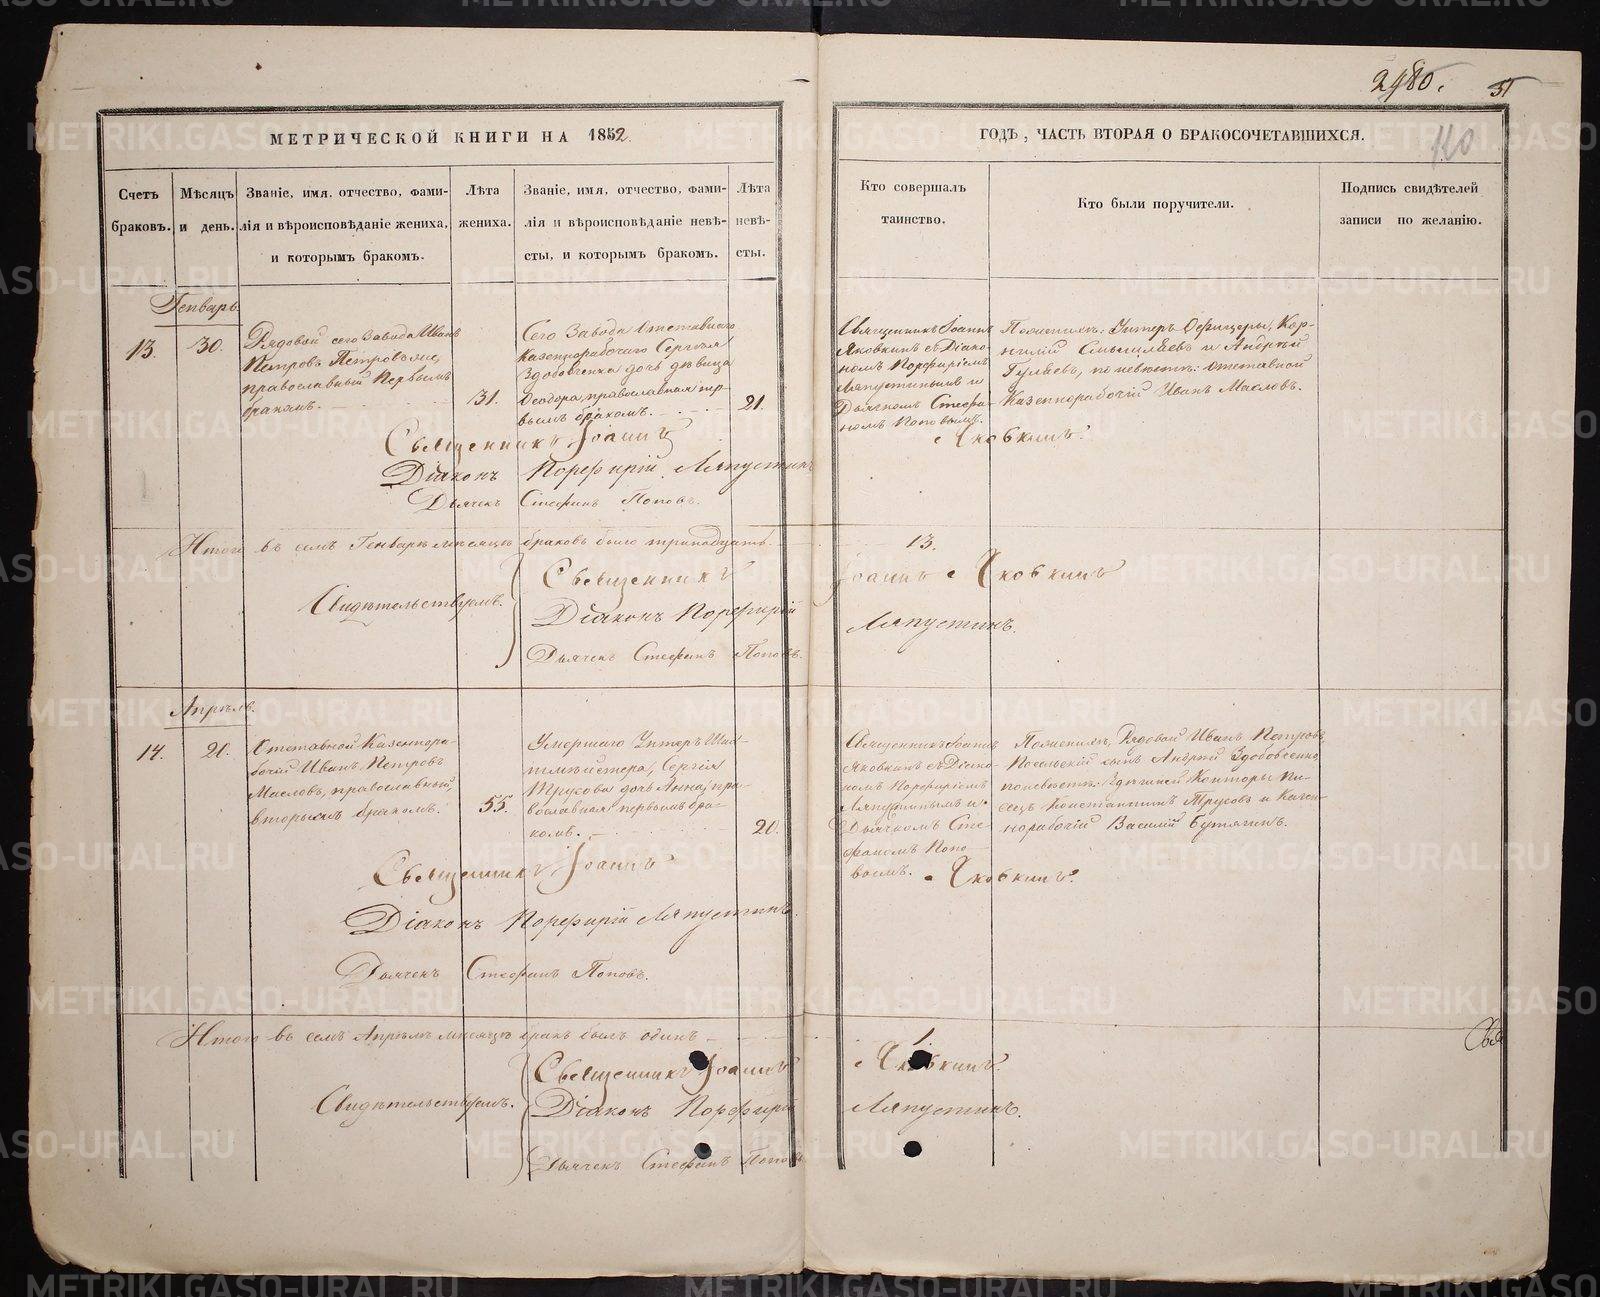 2980.
51
110
МЕТРИЧЕСКОЙ КНИГИ НА 1852.
ГОДЪ, ЧАСТЬ ВТОРАЯ О БРАКОСОЧЕТАВШИХСЯ.
Счетъ
браковъ.
Мѣсяцъ
и день.
Званіе, имя, отчество, фами-
лія и вѣроисповѣданіе жениха,
и которымъ бракомъ.
Лѣта
жениха.
Званіе, имя, отчество, фами-
лія и вѣроисповѣданіе невѣ-
сты, и которымъ бракомъ.
Лѣта
невѣ-
сты.
Кто совершалъ
таинство.
Кто были поручители.
Подпись свидѣтелей
записи по желанію.
Генварь
13.
30.
Рядовой сего Завода Иванъ
Петровъ
православный первымъ
бракомъ.
31.
Сего Завода Отставнаго
казеннорабочаго Сергѣя
Здобовченка дочь дѣвица
Ѳеодора, православная пер-
вымъ бракомъ.
21.
Священникъ Іоаннъ
Яковкинъ съ Діако-
номъ Порфиріемъ
Ляпустинымъ и
Дьячкомъ Стефа-
номъ Поповымъ.
По женихѣ: Унтеръ Офицеры, Кор-
нилій Смышляевъ и Андрей
Гуляевъ, по невѣстѣ: Отставной
Казеннорабочій Иванъ Масловъ.
Священникъ Іоаннъ Яковкинъ.
Діаконъ Порфирій Ляпустинъ
Дьячекъ Стефанъ Поповъ.
Итого въ семъ Генварѣ мѣсяцѣ браковъ было тринадцать. 13.
Свидѣтельствуемъ.
Священникъ Іоаннъ Яковкинъ
Діаконъ Порфирій Ляпустинъ.
Дьячекъ Стефанъ Поповъ.
Апрѣль.
14.
21.
Отставной Казеннора-
бочій Иванъ Петровъ
Масловъ, православный,
вторымъ бракомъ.
55.
Умершаго Унтеръ Шихт-
мейстера, Сергѣя
Трусова дочь Анна, пра-
вославная первымъ бра-
комъ.
20.
Священникъ Іоаннъ
Яковкинъ съ Діако-
номъ Порфиріемъ
Ляпустинымъ и
Дьячкомъ Сте-
фаномъ Попо-
вымъ.
По женихѣ, Рядовой Иванъ Петровъ
сынъ Андрей Здобовченко,
по невѣстѣ: Здѣшней Конторы Пи-
сецъ Константинъ Трусовъ и Казен-
норабочій Василій Бутягинъ.
Священникъ Іоаннъ Яковкинъ.
Діаконъ Порфирій Ляпустинъ.
Дьячекъ Стефанъ Поповъ.
Итого въ семъ Апрѣлѣ мѣсяцѣ бракъ былъ одинъ 1.
Свидѣтельствуемъ.
Священникъ Іоаннъ Яковкинъ.
Діаконъ Порфирій Ляпустинъ.
Дьячекъ Стефанъ Поповъ
METRIKI.GASO-URAL.RU